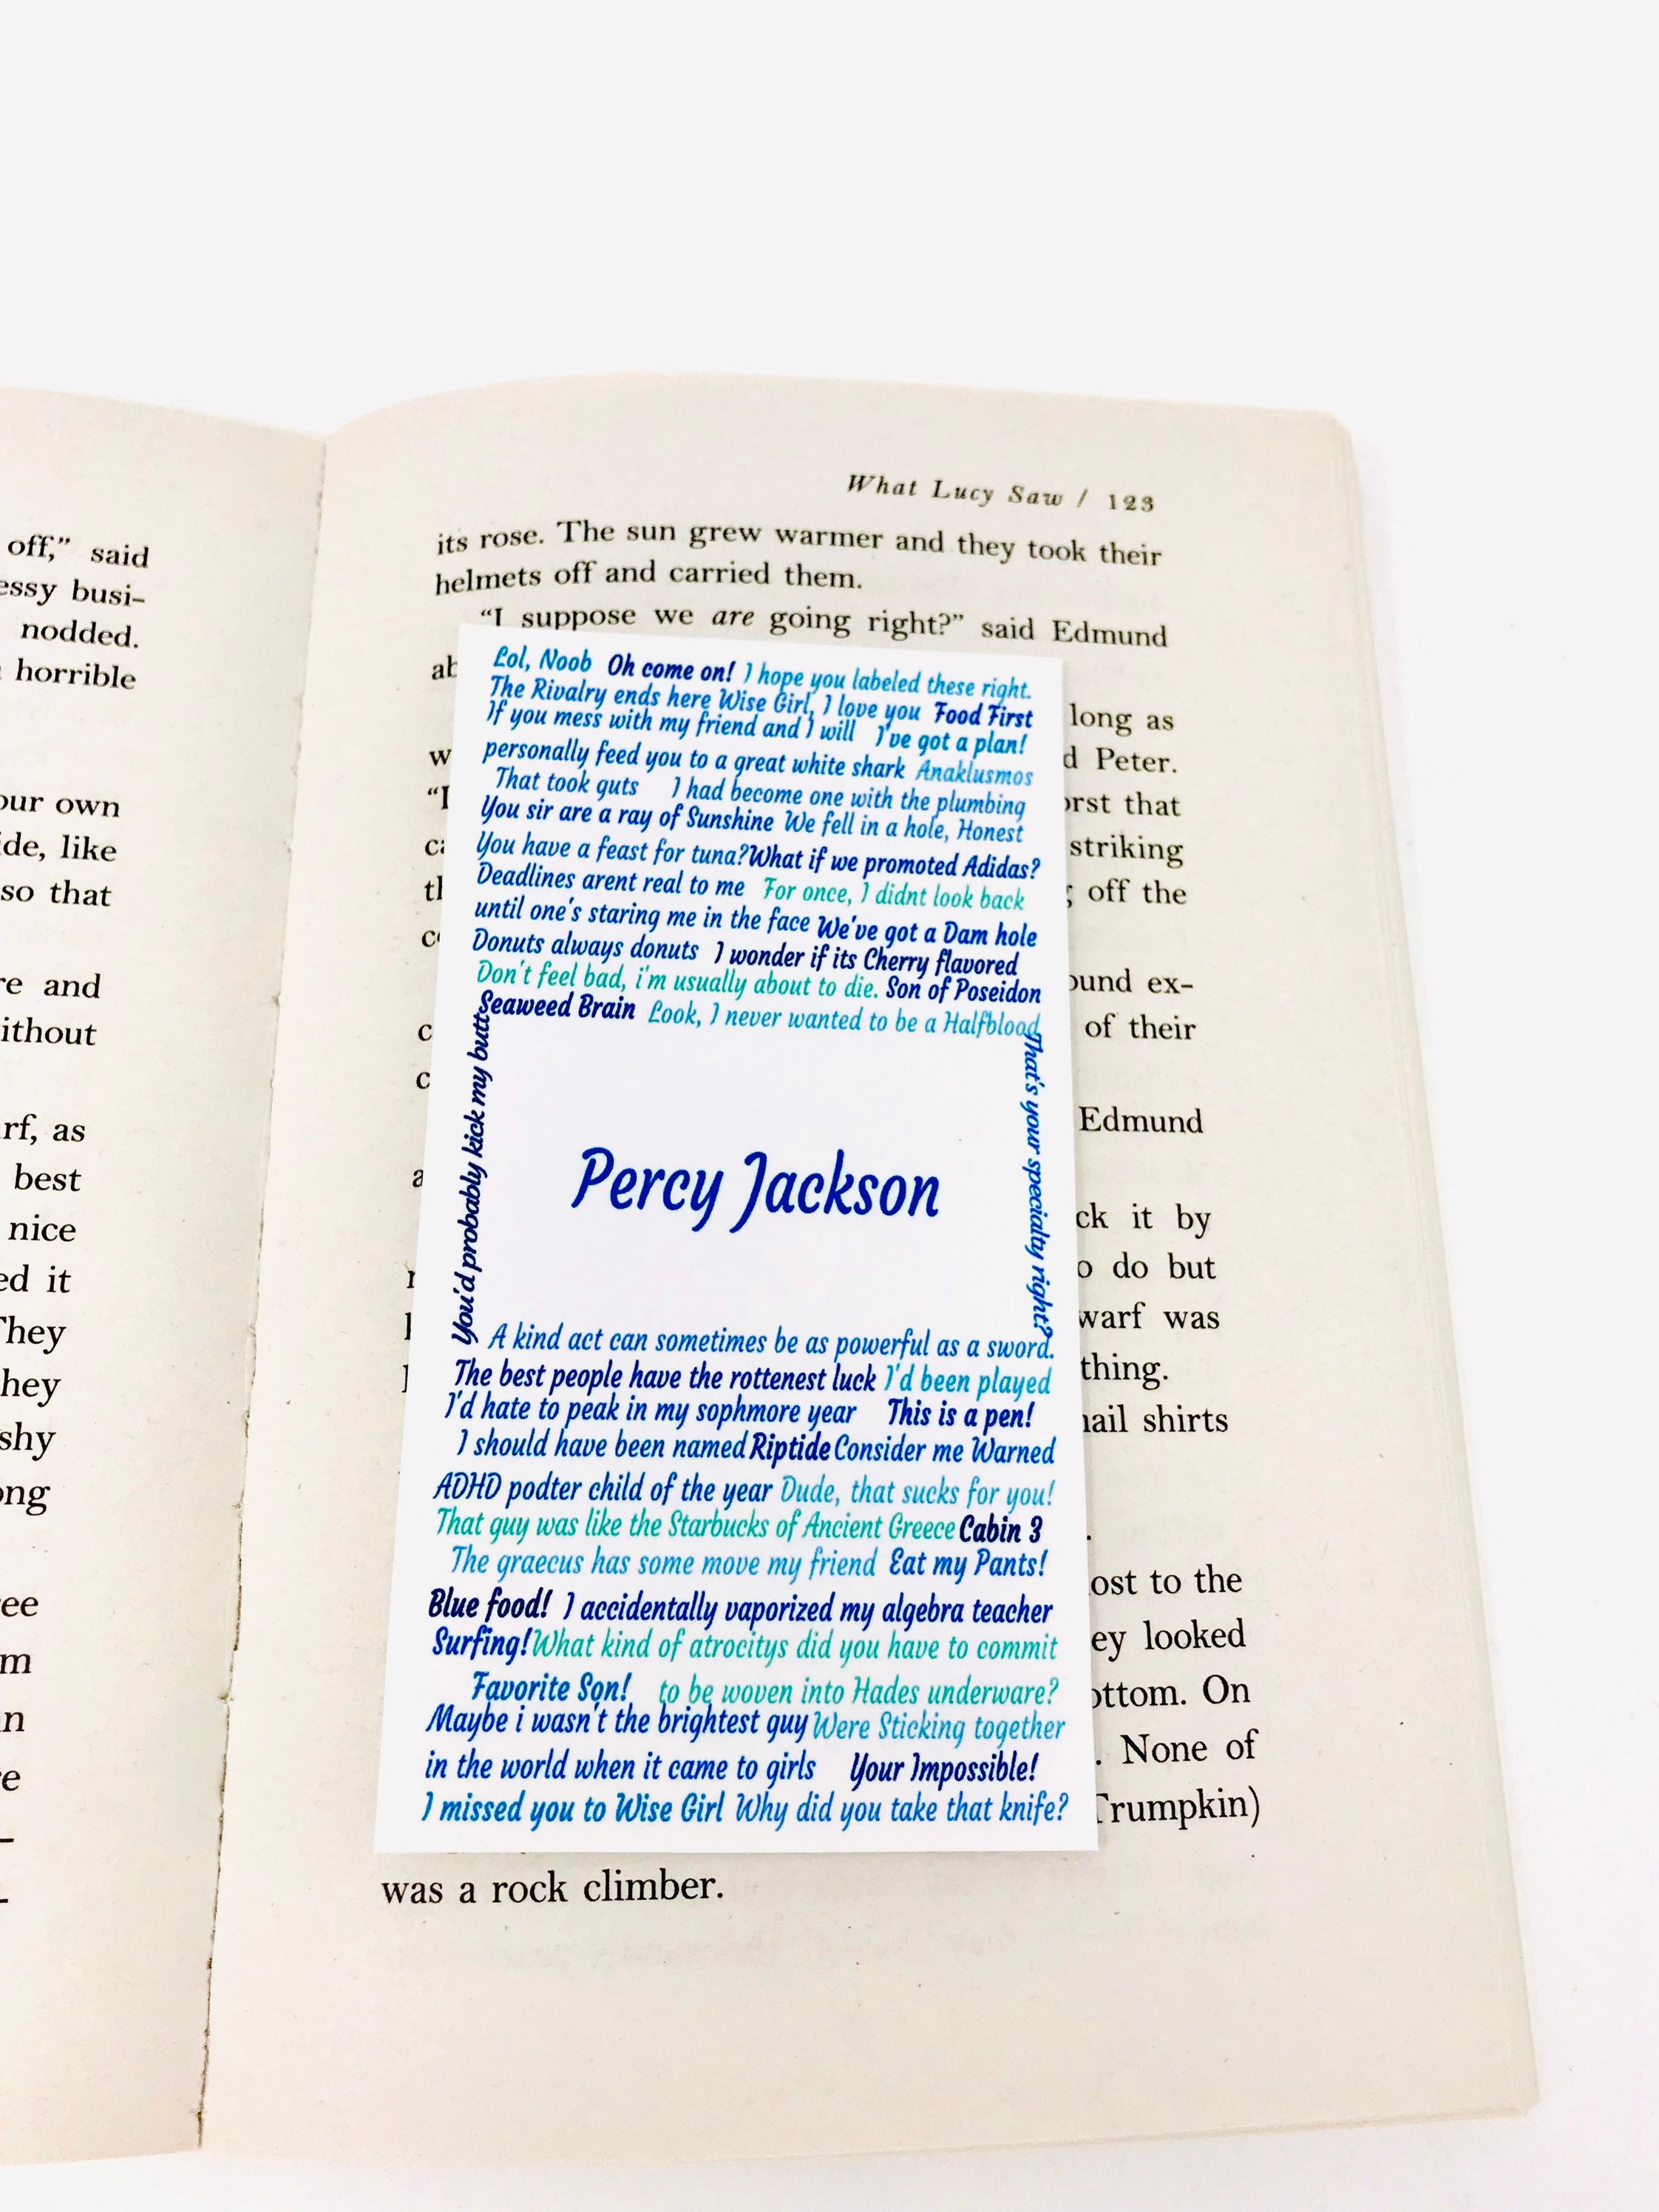 off,” said
essy busi-
nodded.
horrible
our own
ide, like
so that
re and
ithout
rf, as
best
nice
ed it
They
they
shy
ong
ee
m
n
e
What Lucy Saw / 123
its rose. The sun grew warmer and they took their
helmets off and carried them.
“I suppose we are going right?” said Edmund
ab
long as
w d Peter.
“I orst that
ca striking
th ; off the
co
ound ex-
c of their
c
Edmund
a
ck it by
r o do but
warf was
thing.
nail shirts
.
ost to the
ey looked
ottom. On
. None of
Trumpkin)
was a rock climber.
Lol, Noob Oh come on! I hope you labeled these right.
The Rivalry ends here Wise Girl, I love you Food First
If you mess with my friend and I will I've got a plan!
personally feed you to a great white shark Anaklusmos
That took guts I had become one with the plumbing
You sir are a ray of Sunshine We fell in a hole, Honest
You have a feast for tuna? What if we promoted Adidas?
Deadlines arent real to me For once, I didnt look back
until one's staring me in the face We've got a Dam hole
Donuts always donuts I wonder if its Cherry flavored
Don't feel bad, i'm usually about to die. Son of Poseidon
Seaweed Brain Look, I never wanted to be a Halfblood
You'd probably kick my butt
That's your specialty right?
Percy Jackson
A kind act can sometimes be as powerful as a sword.
The best people have the rottenest luck I'd been played
I'd hate to peak in my sophmore year This is a pen!
I should have been named Riptide Consider me Warned
ADHD podter child of the year Dude, that sucks for you!
That guy was like the Starbucks of Ancient Greece Cabin 3
The graecus has some move my friend Eat my Pants!
Blue food! I accidentally vaporized my algebra teacher
Surfing! What kind of atrocitys did you have to commit
Favorite Son! to be woven into Hades underware?
Maybe i wasn't the brightest guy Were Sticking together
in the world when it came to girls Your Impossible!
I missed you to Wise Girl Why did you take that knife?